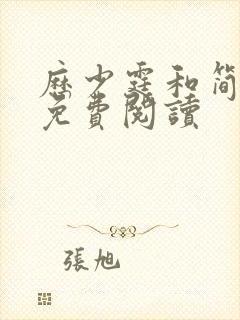 歷少霆和簡
免費閱讀
張旭